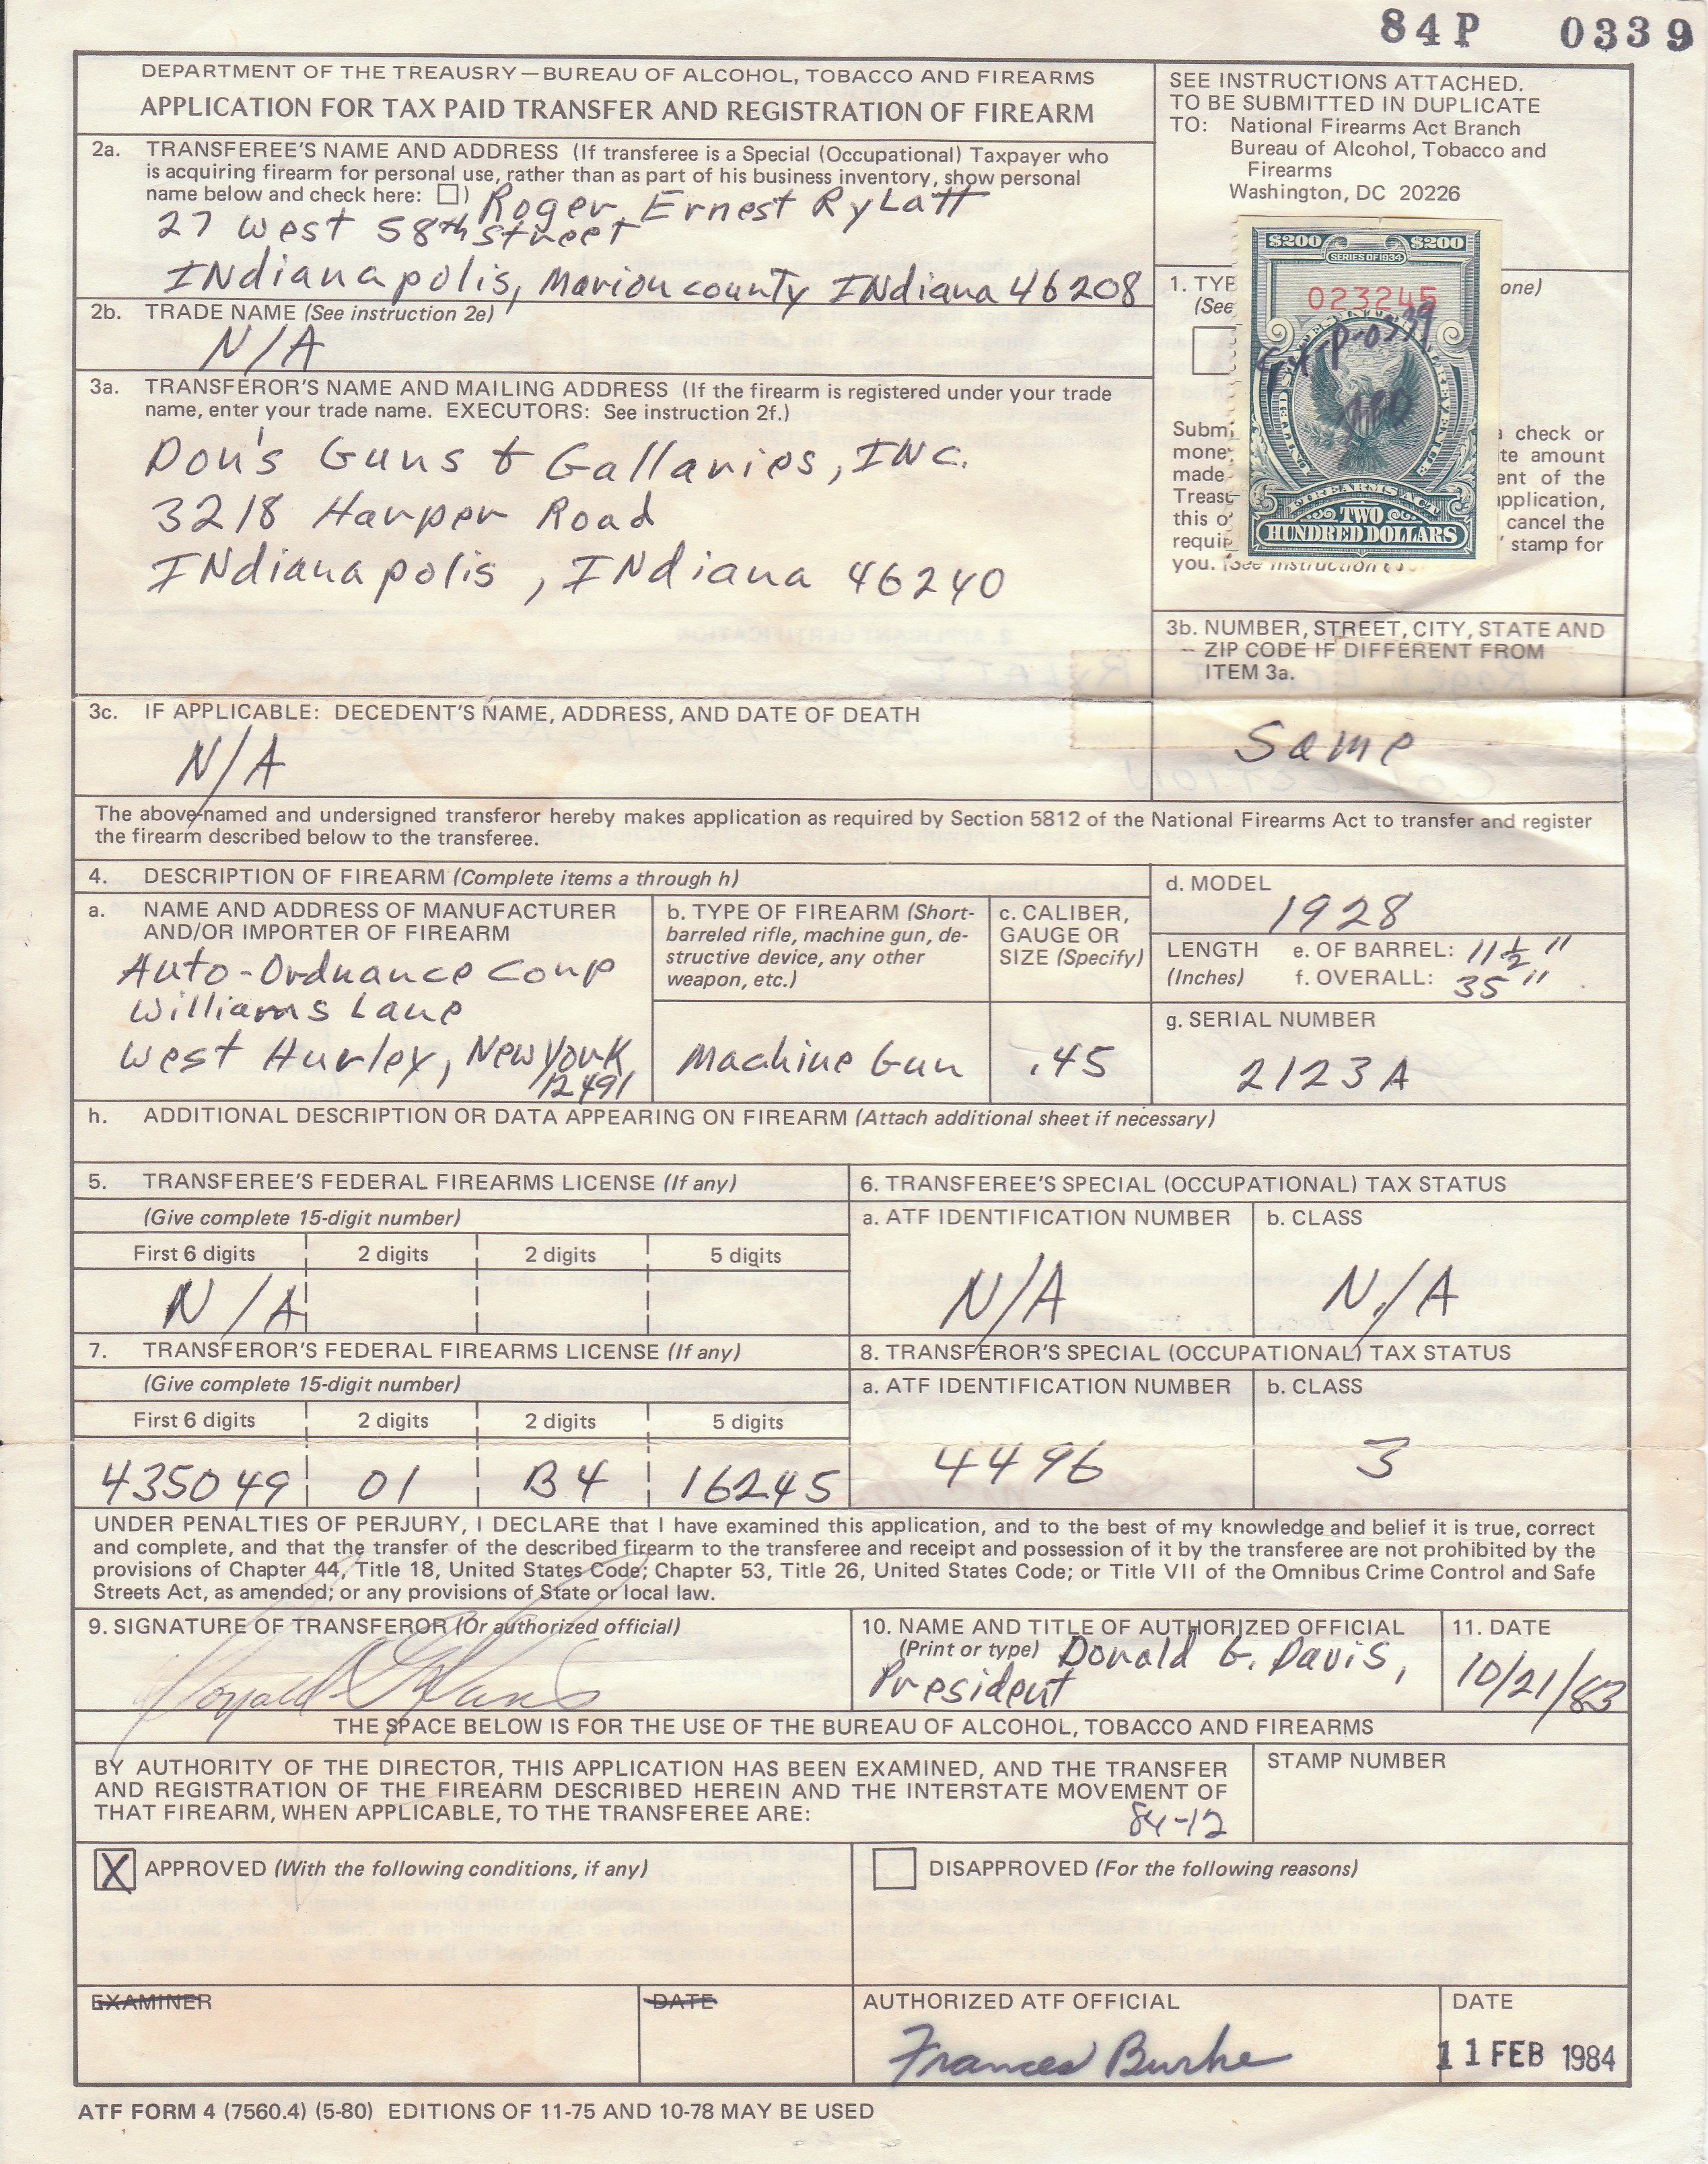 84P 0339
DEPARTMENT OF THE TREAUSRY—BUREAU OF ALCOHOL, TOBACCO AND FIREARMS
APPLICATION FOR TAX PAID TRANSFER AND REGISTRATION OF FIREARM
SEE INSTRUCTIONS ATTACHED.
TO BE SUBMITTED IN DUPLICATE
TO: National Firearms Act Branch
Bureau of Alcohol, Tobacco and
Firearms
Washington, DC 20226
2a. TRANSFEREE'S NAME AND ADDRESS (If transferee is a Special (Occupational) Taxpayer who
is acquiring firearm for personal use, rather than as part of his business inventory, show personal
name below and check here: ☐) Roger Ernest Rylatt
27 West 58th street
INdianapolis, Marion county INdiana 46208
2b. TRADE NAME (See instruction 2e)
N/A
3a. TRANSFEROR'S NAME AND MAILING ADDRESS (If the firearm is registered under your trade
name, enter your trade name. EXECUTORS: See instruction 2f.)
Don's Guns & Gallaries, INC.
3218 Harper Road
INdianapolis, INdiana 46240
1. TYP one)
(See
$200 $200
SERIES OF 1934
023245
84-P-0339
UNITED STATES INTERNAL REVENUE
FIREARMS ACT
TWO
HUNDRED DOLLARS
Subm a check or
mone te amount
made ent of the
Treas application,
this o cancel the
requir stamp for
you. (See instruction
3b. NUMBER, STREET, CITY, STATE AND
ZIP CODE IF DIFFERENT FROM
ITEM 3a.
Same
3c. IF APPLICABLE: DECEDENT'S NAME, ADDRESS, AND DATE OF DEATH
N/A
The above-named and undersigned transferor hereby makes application as required by Section 5812 of the National Firearms Act to transfer and register
the firearm described below to the transferee.
4. DESCRIPTION OF FIREARM (Complete items a through h)
a. NAME AND ADDRESS OF MANUFACTURER
AND/OR IMPORTER OF FIREARM
Auto-Ordnance Corp
Williams Lane
West Hurley, New York
12491
b. TYPE OF FIREARM (Short-
barreled rifle, machine gun, de-
structive device, any other
weapon, etc.)
Machine Gun
c. CALIBER,
GAUGE OR
SIZE (Specify)
.45
d. MODEL
1928
LENGTH e. OF BARREL: 11½"
(Inches) f. OVERALL: 35"
g. SERIAL NUMBER
2123A
h. ADDITIONAL DESCRIPTION OR DATA APPEARING ON FIREARM (Attach additional sheet if necessary)
5. TRANSFEREE'S FEDERAL FIREARMS LICENSE (If any)
(Give complete 15-digit number)
First 6 digits 2 digits 2 digits 5 digits
N/A
6. TRANSFEREE'S SPECIAL (OCCUPATIONAL) TAX STATUS
a. ATF IDENTIFICATION NUMBER b. CLASS
N/A N/A
7. TRANSFEROR'S FEDERAL FIREARMS LICENSE (If any)
(Give complete 15-digit number)
First 6 digits 2 digits 2 digits 5 digits
435049 01 B4 16245
8. TRANSFEROR'S SPECIAL (OCCUPATIONAL) TAX STATUS
a. ATF IDENTIFICATION NUMBER b. CLASS
4496 3
UNDER PENALTIES OF PERJURY, I DECLARE that I have examined this application, and to the best of my knowledge and belief it is true, correct
and complete, and that the transfer of the described firearm to the transferee and receipt and possession of it by the transferee are not prohibited by the
provisions of Chapter 44, Title 18, United States Code; Chapter 53, Title 26, United States Code; or Title VII of the Omnibus Crime Control and Safe
Streets Act, as amended; or any provisions of State or local law.
9. SIGNATURE OF TRANSFEROR (Or authorized official)
Donald G. Davis
10. NAME AND TITLE OF AUTHORIZED OFFICIAL
(Print or type) Donald G. Davis,
President
11. DATE
10/21/83
THE SPACE BELOW IS FOR THE USE OF THE BUREAU OF ALCOHOL, TOBACCO AND FIREARMS
BY AUTHORITY OF THE DIRECTOR, THIS APPLICATION HAS BEEN EXAMINED, AND THE TRANSFER
AND REGISTRATION OF THE FIREARM DESCRIBED HEREIN AND THE INTERSTATE MOVEMENT OF
THAT FIREARM, WHEN APPLICABLE, TO THE TRANSFEREE ARE:
84-12
STAMP NUMBER
X APPROVED (With the following conditions, if any)
DISAPPROVED (For the following reasons)
EXAMINER
DATE
AUTHORIZED ATF OFFICIAL
Frances Burke
DATE
11 FEB 1984
ATF FORM 4 (7560.4) (5-80) EDITIONS OF 11-75 AND 10-78 MAY BE USED